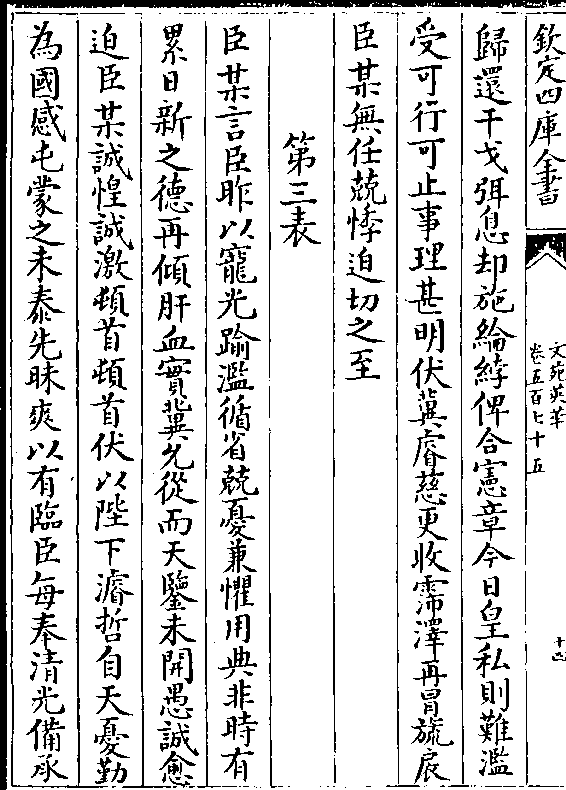 欽定四庫全書
文苑英華
卷五百七十五
十四
歸還干戈弭息却施綸綍俾合憲章今日皇私則難濫
受可行可止事理甚明伏冀睿慈更收霈澤再冒旒扆
臣某無任兢悸迫切之至
第三表
臣某言臣昨以寵光踰濫循省兢憂兼懼用典非時有
累日新之德再傾肝血實冀允從而天鑒未開愚誠愈
迫臣某誠惶誠激頓首頓首伏以陛下濬哲自天憂勤
為國感屯蒙之未泰先昧爽以有臨臣每奉清光備承